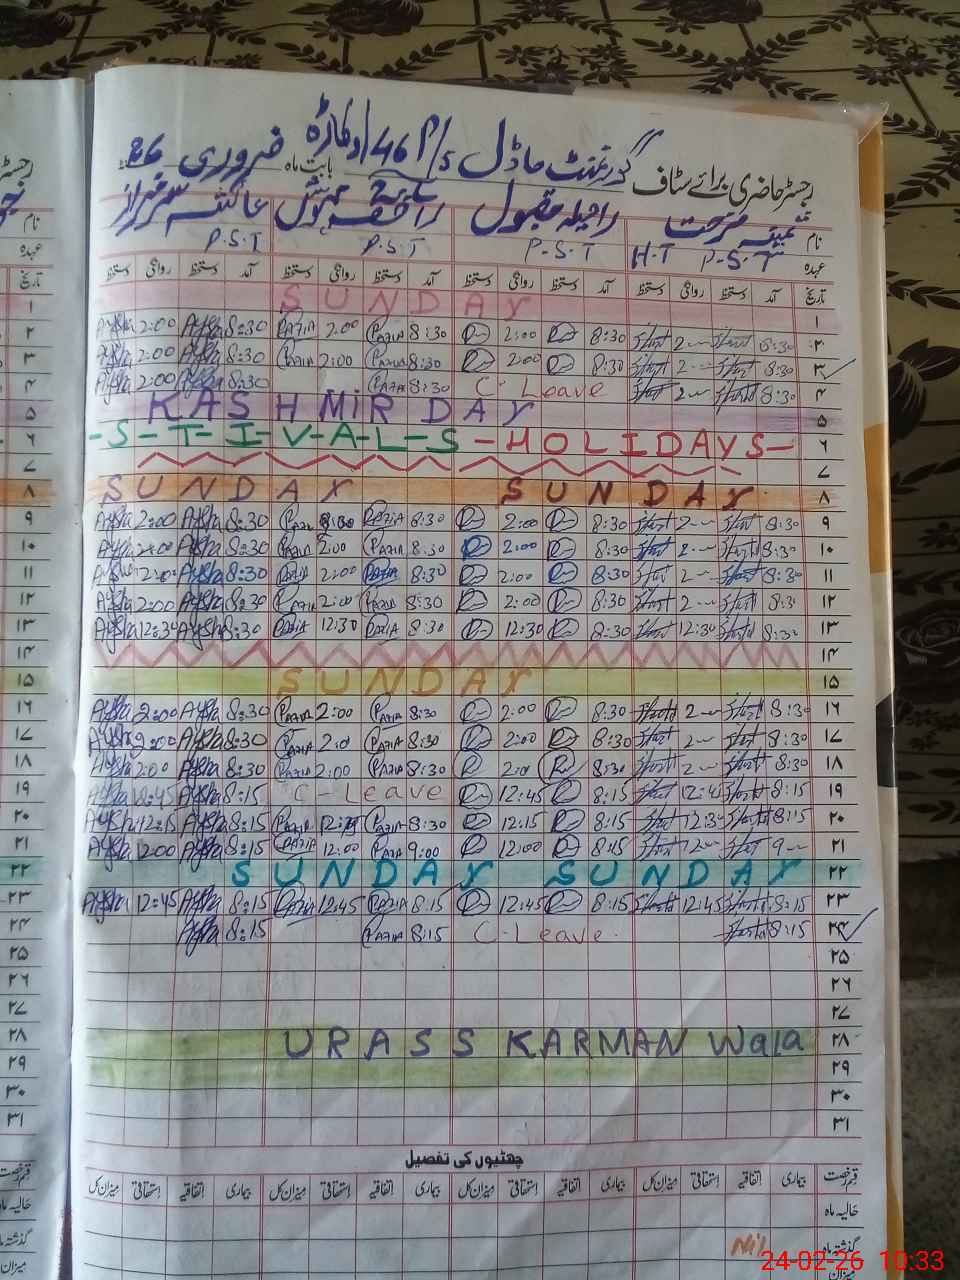 رجسٹر حاضری برائے سٹاف گورنمنٹ ماڈل 46/5 اوکاڑہ بابت ماہ فروری 26
نام ثمینہ فرحت راحیلہ مقبول عائشہ سرفراز
عہدہ H.T P.S.T P.S.T P.S.T P.S.T
تاریخ آمد دستخط روانگی دستخط آمد دستخط روانگی دستخط آمد دستخط روانگی دستخط آمد دستخط روانگی دستخط
SUNDAY ۱
Aysha 2:00 Aysha 8:30 Razia 2:00 Razia 8:30 2:00 8:30 2 8:30 ۲
Aysha 2:00 Aysha 8:30 Razia 2:00 Razia 8:30 2:00 8:30 2 8:30 ۳
Aysha 2:00 Aysha 8:30 Razia 8:30 C-Leave 2 8:30 ۴
KASHMIR DAY ۵
-S-T-I-V-A-L-S-HOLIDAYS- ۶
۷
SUNDAY SUNDAY ۸
Aysha 2:00 Aysha 8:30 Razia Razia 8:30 2:00 8:30 2 8:30 ۹
Aysha 2:00 Aysha 8:30 Razia 2:00 Razia 8:30 2:00 8:30 2 8:30 ۱۰
Aysha 2:00 Aysha 8:30 Razia 2:00 Razia 8:30 2:00 8:30 2 8:30 ۱۱
Aysha 2:00 Aysha 8:30 Razia 2:00 Razia 8:30 2:00 8:30 2 8:30 ۱۲
Aysha 12:30 Aysha 8:30 Razia 12:30 Razia 8:30 12:30 8:30 12:30 8:30 ۱۳
۱۴
SUNDAY ۱۵
Aysha 2:00 Aysha 8:30 Razia 2:00 Razia 8:30 2:00 8:30 2 8:30 ۱۶
Aysha 2:00 Aysha 8:30 Razia 2:0 Razia 8:30 2:00 8:30 2 8:30 ۱۷
Aysha 2:00 Aysha 8:30 Razia 2:00 Razia 8:30 2:0 8:30 2 8:30 ۱۸
Aysha 12:45 Aysha 8:15 C-Leave 12:45 8:15 12:45 8:15 ۱۹
Aysha 12:15 Aysha 8:15 Razia Razia 8:30 12:15 8:15 12:30 8:15 ۲۰
Aysha 12:00 Aysha 8:15 Razia 12:00 Razia 9:00 12:00 8:15 12 9 ۲۱
SUNDAY SUNDAY ۲۲
Aysha 12:45 Aysha 8:15 Razia 12:45 Razia 8:15 12:45 8:15 12:45 8:15 ۲۳
Aysha 8:15 Razia 8:15 C-Leave 8:15 ۲۴
۲۵
۲۶
۲۷
URASS KARMAN Wala ۲۸
۲۹
۳۰
۳۱
چھٹیوں کی تفصیل
قسم رخصت بیماری اتفاقیہ استحقاقی میزان کل بیماری اتفاقیہ استحقاقی میزان کل بیماری اتفاقیہ استحقاقی میزان کل بیماری اتفاقیہ استحقاقی میزان کل
حالیہ ماہ
گذشتہ ماہ Nil
میزان
24-02-26 10:33